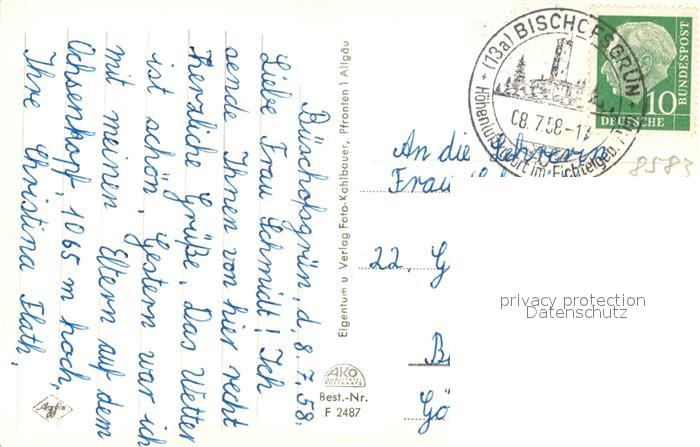 Büschofsgrün, d. 8.7.58.
Liebe Frau Schmidt! Ich
sende Ihnen von hier recht
herzliche Grüße. Das Wetter
ist schön. Gestern war ich
mit meinen Eltern auf dem
Ochsenkopf 1065 m hoch.
Ihre Christina Flath.
Agfa
Eigentum u. Verlag Foto-Kohlbauer, Pfronten i Allgäu
AKO
QUALITÄTS-
POSTKARTE
Best.-Nr.
F 2487
(13a) BISCHOFSGRÜN
08.7.58-1
Höhenluftkurort im Fichtelgeb.
10
DEUTSCHE
BUNDESPOST
An die Lehrerin
Frau
22. G
B
Gö
8583
privacy protection
Datenschutz